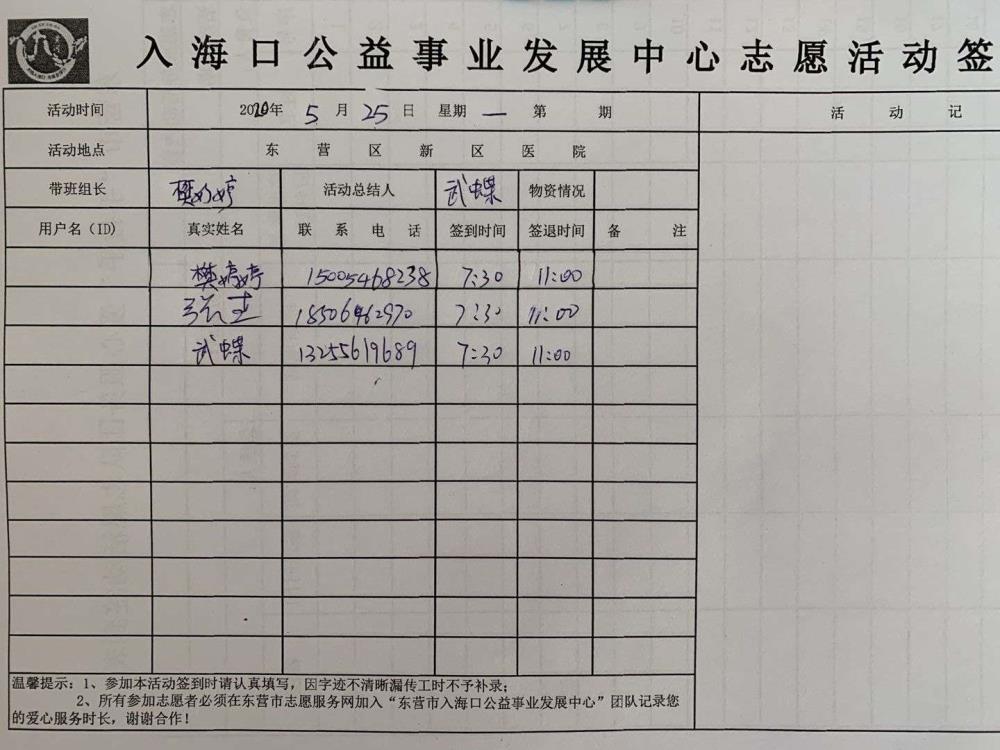 入海口公益事业发展中心志愿活动签
活动时间 2020年 5 月 25 日 星期 一 第 期 活 动 记
活动地点 东 营 区 新 区 医 院
带班组长 樊婷婷 活动总结人 武蝶 物资情况
用户名（ID） 真实姓名 联 系 电 话 签到时间 签退时间 备 注
樊婷婷 15005468238 7:30 11:00
18506462970 7:30 11:00
武蝶 13255619689 7:30 11:00
温馨提示：1、参加本活动签到时请认真填写，因字迹不清晰漏传工时不予补录；
2、所有参加志愿者必须在东营市志愿服务网加入“东营市入海口公益事业发展中心”团队记录您
的爱心服务时长，谢谢合作！